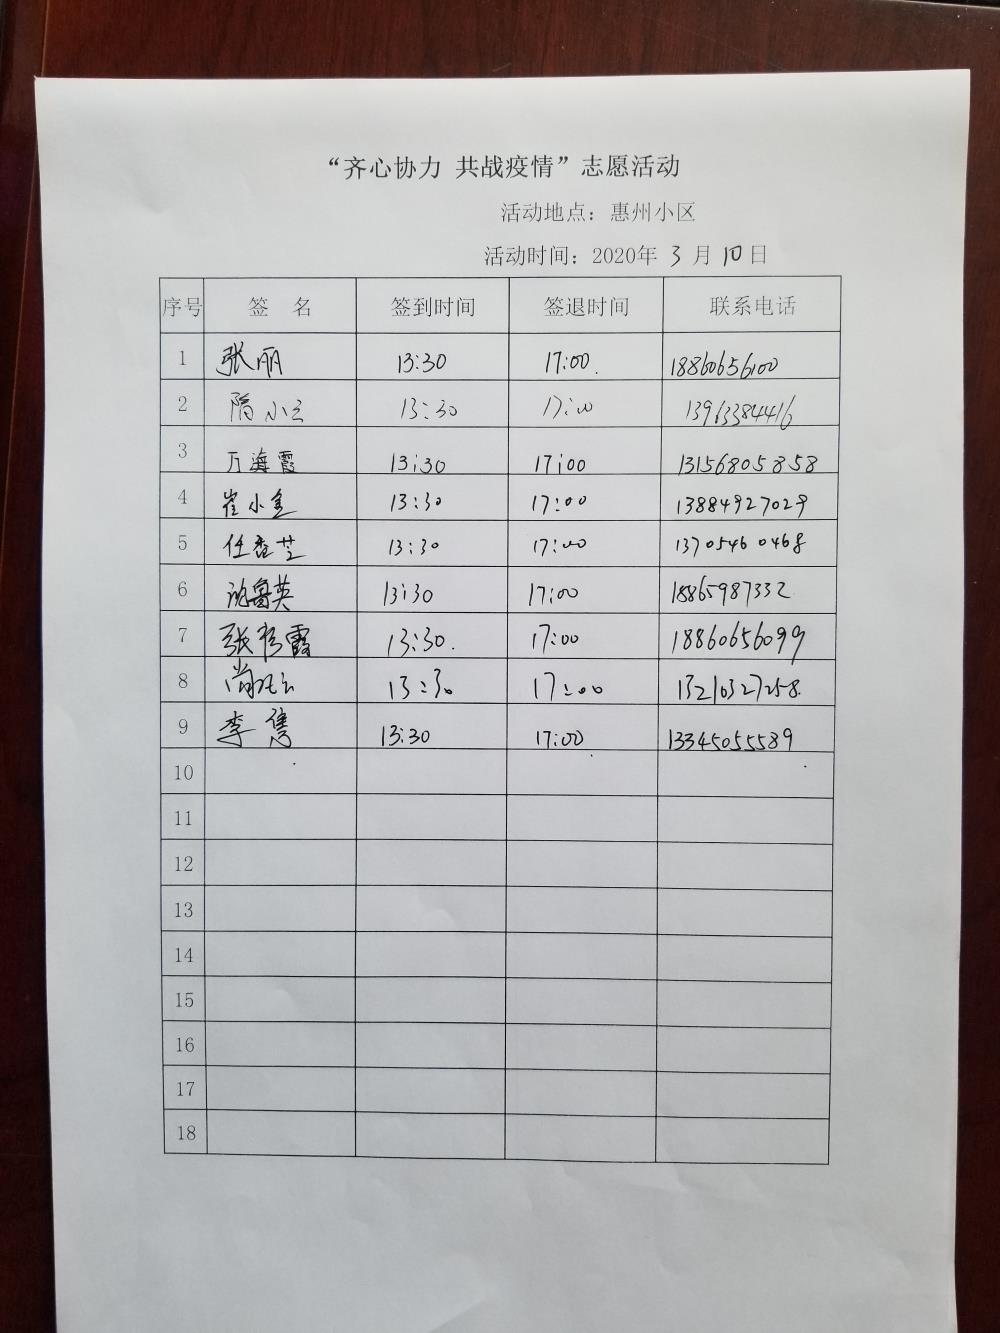 “齐心协力 共战疫情”志愿活动
活动地点：惠州小区
活动时间：2020年 3 月 10 日
序号 签 名 签到时间 签退时间 联系电话
1 张丽 13:30 17:00. 18860656100
2 隋小云 13:30 17:00 13963384416
3 万海霞 13:30 17:00 13156805858
4 崔小金 13:30 17:00 13884927029
5 任香芝 13:30 17:00 13705460468
6 鲁英 13:30 17:00 18865987332
7 张 霞 13:30. 17:00 18860656099
8 尚 13:30 17:00 13210327258.
9 李隽 13:30 17:00 13345055589
10
11
12
13
14
15
16
17
18